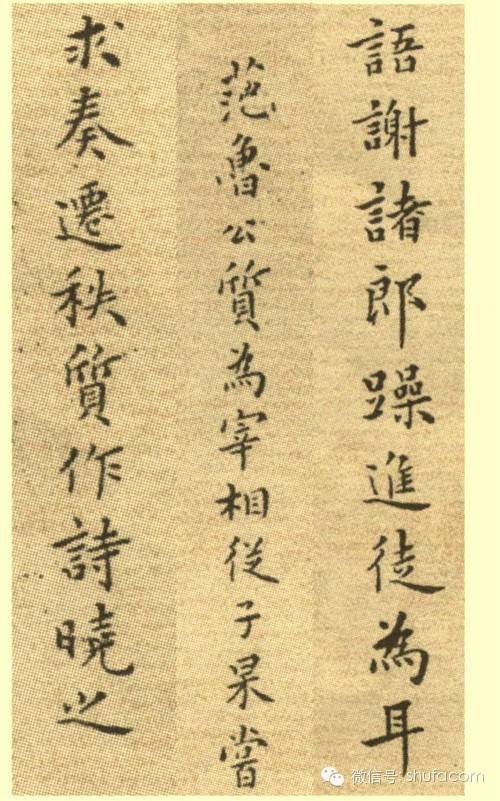 語謝諸郎躁進徒為耳
范魯公質為宰相從子杲嘗
求奏遷秩質作詩曉之
微信号: shufacom